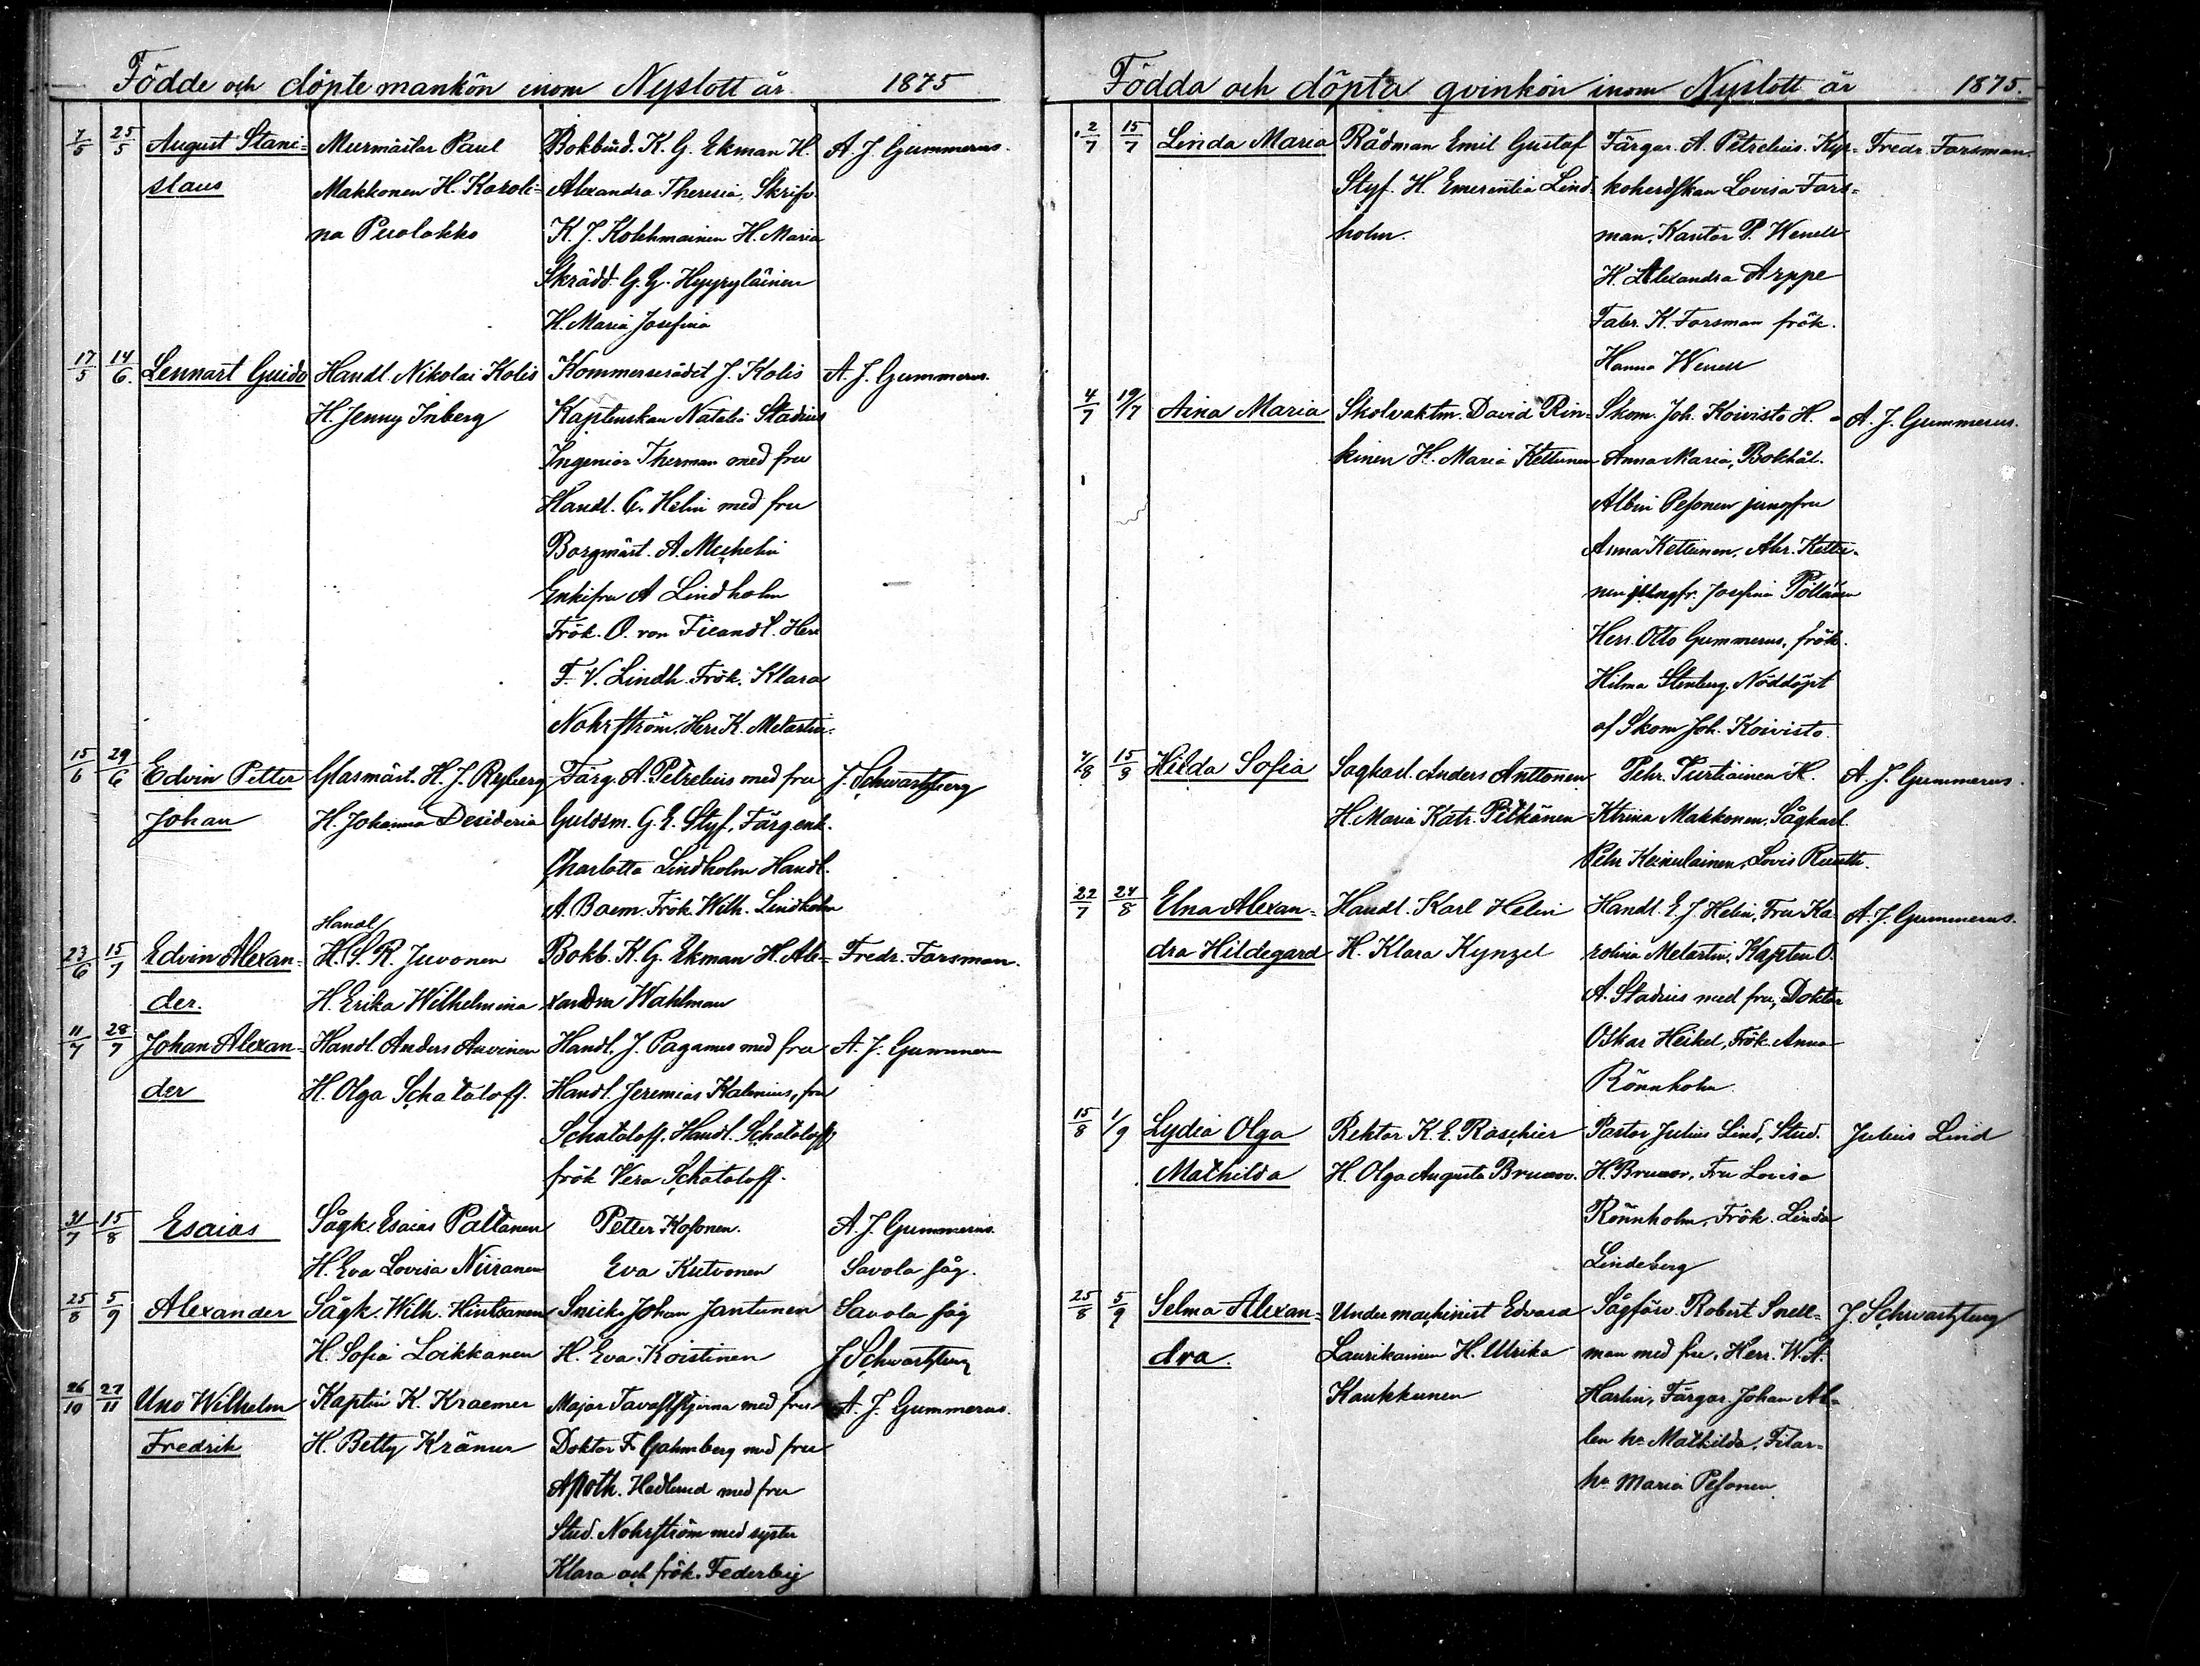 Födde och döpte mankön inom Nyslott år 1875
7/5 25/5 August Stani- Murmästar Paul Bokbind. K. G. Ekman H. A. J. Gummerus.
slaus Makkonen H. Karoli- Alexandra Theresia, Skrifv.
na Puolakko K. J. Kolehmainen H. Maria
Skrädd. G. G. Hyyryläinen
H. Maria Josefina
17/5 14/6 Lennart Guido Handl. Nikolai Kolis Kommerserådet J. Kolis A. J. Gummerus.
H. Jenny Inberg Kaptenskan Natalia Stadius
Ingeniör Therman med fru
Handl. C. Helin med fru
Borgmäst. A. Mechelin
Enkefru A Lindholm
Frök. O. von Fieandt. Herr
F. V. Lindh. Frök. Klara
Nohrström. Herr K. Melartin.
15/6 29/6 Edvin Petter Glasmäst. H. J. Ryberg Färg. A. Petrelius med fru J. Schwartzberg
Johan H. Johanna Desideria Guldsm. G. E. Styf, Färgenk.
Charlotta Lindholm Handl.
A. Boem. Frök. Wilh. Lindholm
Handl
23/6 15/7 Edvin Alexan- H. S. R. Juvonen Bokb. K. G. Ekman H. Ale- Fredr. Forsman.
der. H. Erika Wilhelmina xandra Wahlman
11/7 28/7 Johan Alexan- Handl. Anders Auvinen Handl. J. Paganus med fru A. J. Gummerus
der H. Olga Schatoloff. Handl. Jeremias Kalmius, fru
Schatoloff, Handl. Schatoloff,
frök Vera Schatoloff.
31/7 15/8 Esaias Sågk. Esaias Paltanen Petter Kosonen. A. J. Gummerus.
H. Eva Lovisa Niiranen Eva Kutvonen Savola såg.
25/8 5/9 Alexander Sågk. Wilh. Hintsanen Snick. Johan Jantunen Savola såg
H. Sofia Loikkanen H. Eva Koistinen J Schwartzberg
26/10 27/11 Uno Wilhelm Kaptén K. Kraemer Major Tavaststjerna med fru A. J. Gummerus.
Fredrik H. Betty Krämer Doktor F. Gahmberg med fru
Apoth. Hedlund med fru
Stud. Nohrström med syster
Klara och frök. Federley
Födda och döpta qvinkön inom Nyslott år 1875.
2/7 15/7 Linda Maria Rådman Emil Gustaf Färgar. A. Petrelius. Kyr- Fredr. Forsman.
Styf. H. Emerentia Lind- koherdskan Lovisa Fors-
holm. man, Kantor P. Wenell
H. Alexandra Arppe
Fabr. K. Forsman frök.
Hanna Wenell
4/7 19/7 Aina Maria Skolvaktm. David Rin- Skom. Joh. Koivisto H. A. J. Gummerus.
kinen H. Maria Kettunen Anna Maria, Bokhål.
Albin Pesonen jungfru
Anna Kettunen, Abr. Kettu-
nen jungfr. Josefina Pöllänen
Herr. Otto Gummerus, frök.
Hilma Stenberg. Nöddöpt
af Skom Joh. Koivisto.
15/8 Hilda Sofia Sagkarl. Anders Anttonen Pehr. Turtiainen H. A. J. Gummerus.
H. Maria Katr. Pitkänen Ktrina Makkonen. Sågkarl.
Pehr Keinulainen, Lovis Ruuth.
22/7 24/8 Elna Alexan- Handl. Karl Helin Handl. E J Helin, Fru Ka- A. J. Gummerus.
dra Hildegard H. Klara Kynzel rolina Melartin, Kapten O.
A. Stadius med fru, Doktor
Oskar Heikel, Frök. Anna
Rönnholm.
15/8 1/9 Lydia Olga Rektor K. E. Roschier Pastor Julius Lind, Stud. Julius Lind
Mathilda H. Olga Augusta Brunow. H. Brunow, Fru Lovisa
Rönnholm, Frök. Linda
Lindeberg
25/8 5/9 Selma Alexan- Undermachinist Edvard Sågförv. Robert Snell- J. Schwartzberg
dra. Laurikainen H. Ulrika man med fru, Herr. W. A.
Kaukkunen Harlin, Färgar. Johan Ah-
len hu Mathilda, Filar-
hu Maria Pesonen.